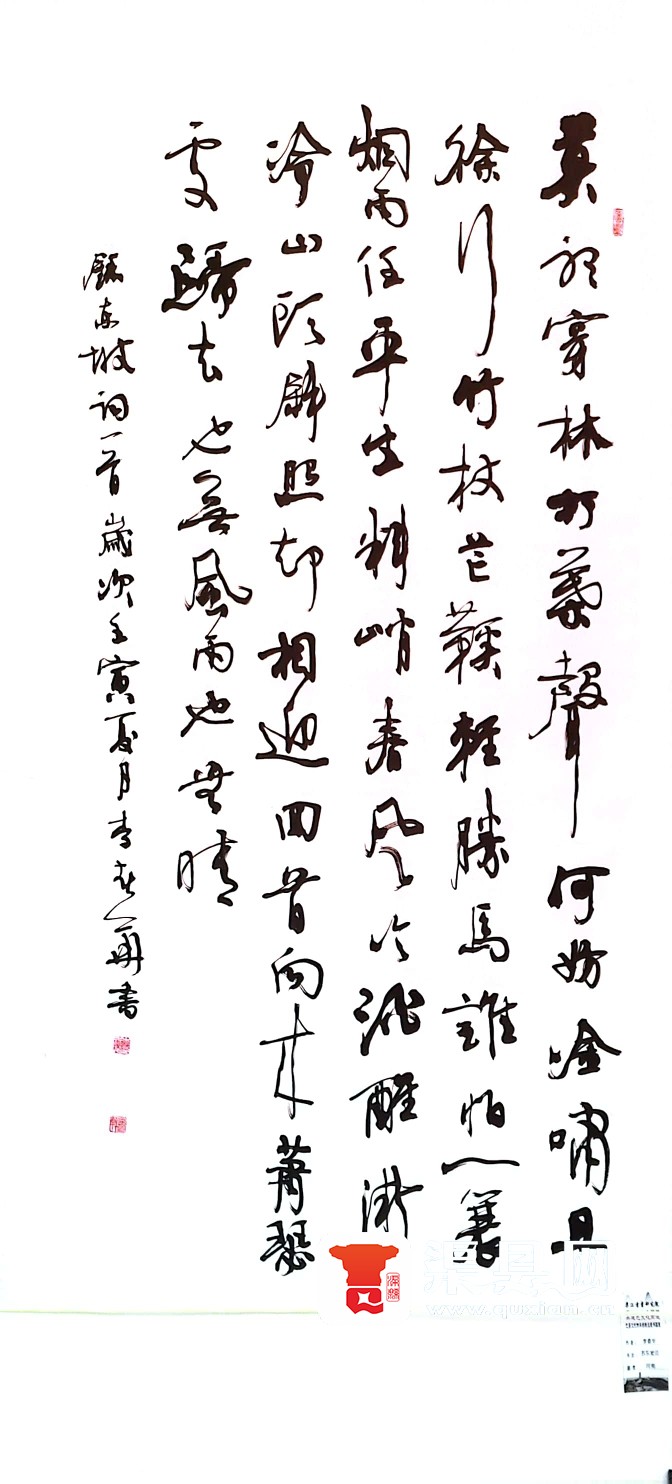 莫聽穿林打葉聲何妨唫嘯且
徐行竹杖芒鞵輕勝馬誰怕一蓑
烟雨任平生料峭春风吹酒醒微
冷山頭斜照却相迎回首向来蕭瑟
處歸去也無風雨也無晴
錄東坡词一首歲次壬寅夏月李書
渠县网